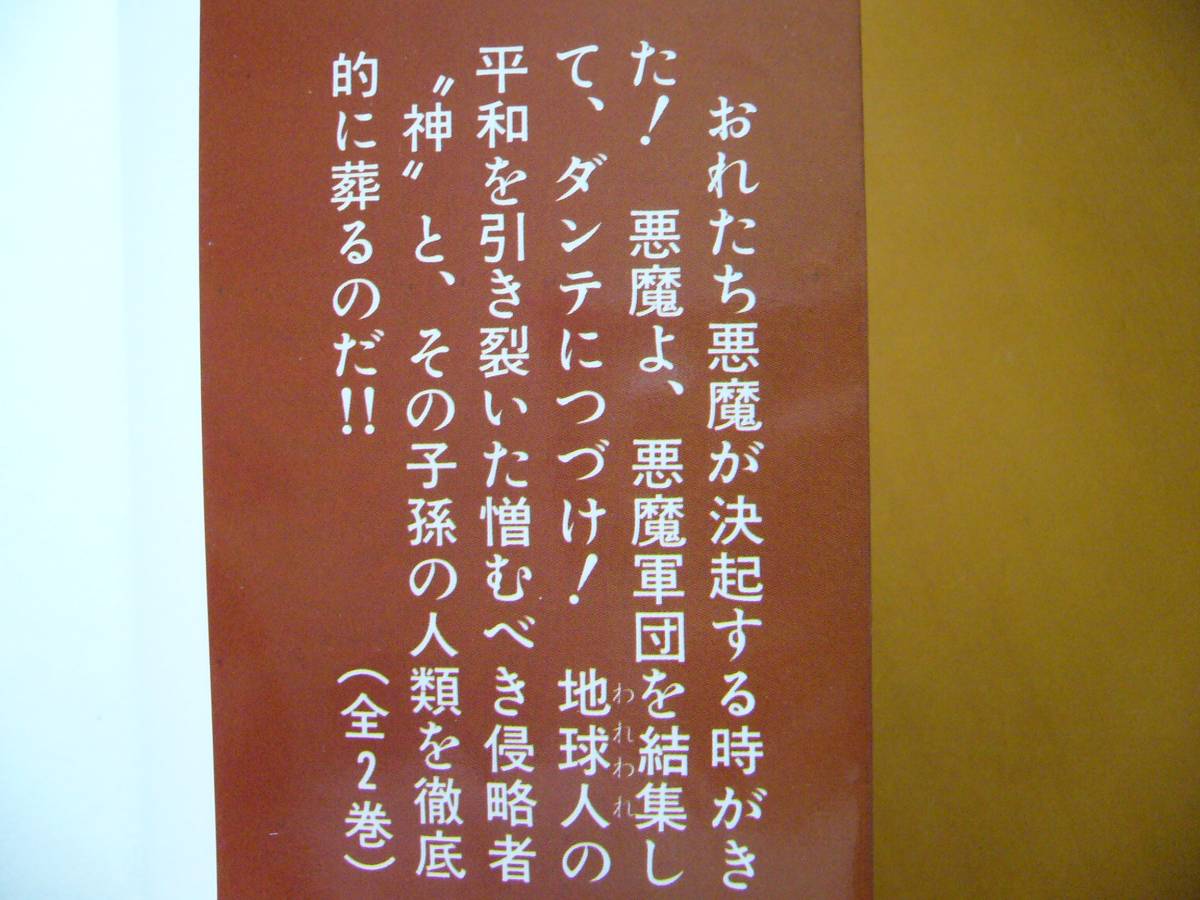 おれたち悪魔が決起する時がき
た！　悪魔よ、悪魔軍団を結集し
て、ダンテにつづけ！　地球人の
われわれ
平和を引き裂いた憎むべき侵略者
〝神〟と、その子孫の人類を徹底
的に葬るのだ!!
（全２巻）